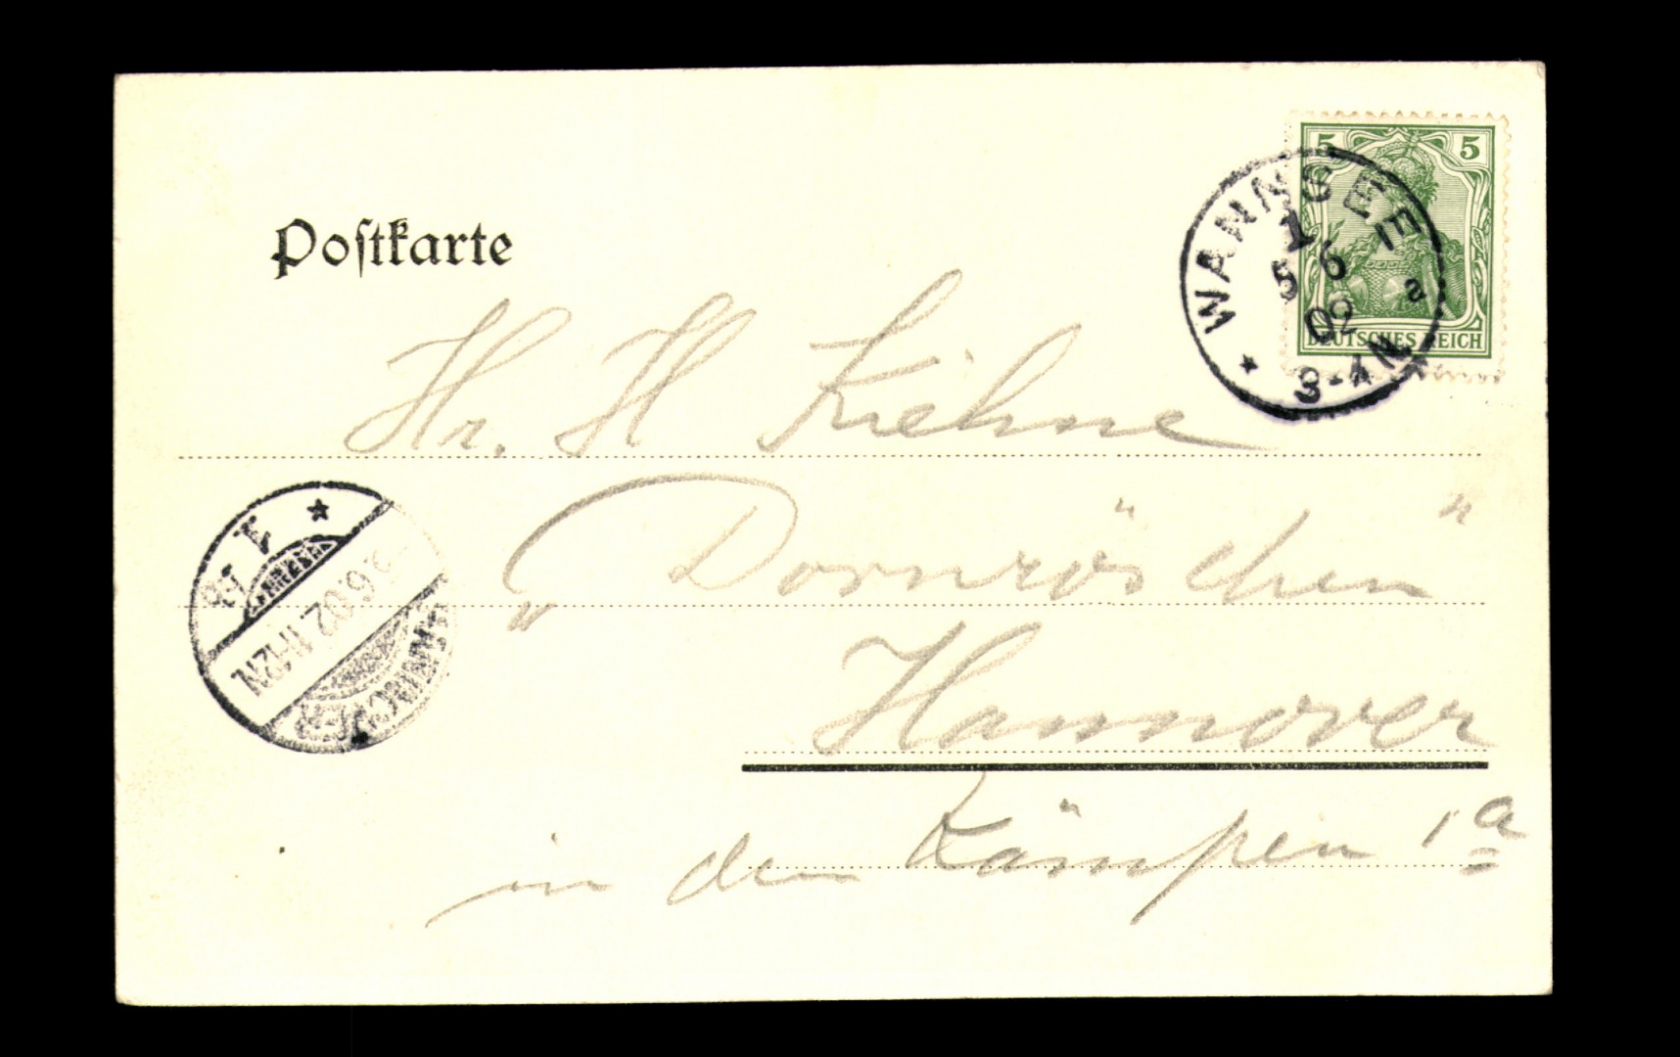 5 5
DEUTSCHES REICH
WANNSEE
5 6
02
3-4 N
Postkarte
Hr. H Kiehne
„Dornröschen"
Hannover
in den Kämpen 1a
HANNOVER
.6.02.11-12N.